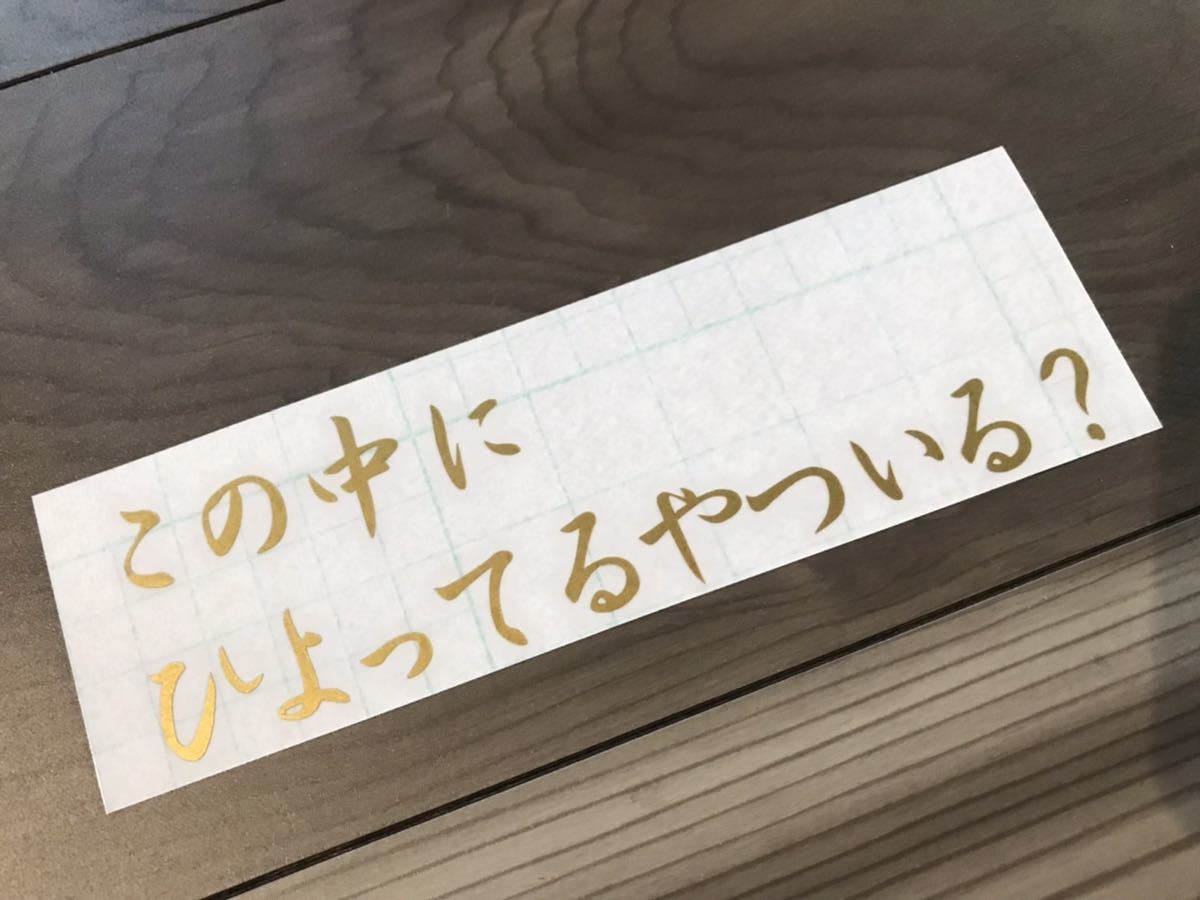 この中に
ひよってるやついる?